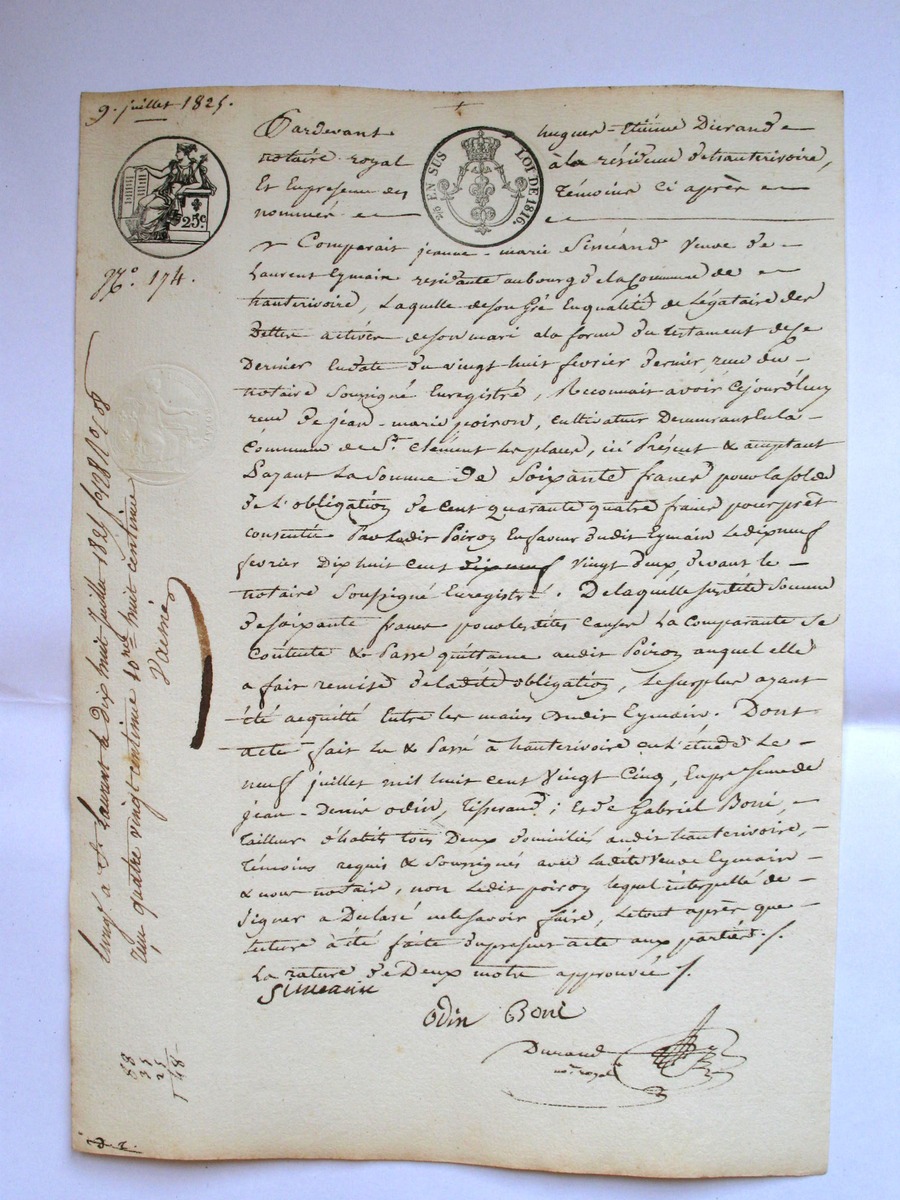 9. juillet 1825.
Pardevant hugues-Etiênne Durand
notaire royal à la résidence d'hauterivoire,
Et En présence des témoins ci après
nommés
25c.
EN SUS LOI DE 1816.
N.o 174.
Comparait jeanne-marie Siméand Veuve de
Laurent Eymain residante au bourg de la Commune de
hauterivoire, Laquelle de son Gré En qualité de Légataire des
Dettes actives de son mari a la forme du testament de ce
Dernier En date du vingt huit fevrier dernier, reçu du
notaire Soussigné Enregistré, Reconnait avoir Cejourdhuy
reçu de jean-marie poiron, cultivateur Demeurant En la
Commune de St. Clément les places, ici Présent & acceptant
Payant La Somme de Soixante francs pour la solde
de L'obligation de Cent quarante quatre francs pour prêt
consentie Par Ledit Poiron En faveur dudit Eymain Le dix neuf
fevrier Dix huit Cent dix neuf Vingt Deux devant le
notaire Soussigné Enregistré. De laquelle susdite Somme
de soixante francs pour les dites Causes La Comparante Se
Contente & Passe quittance audit Poiron auquel elle
a fait remise de la dite obligation, Le surplus ayant
été acquitté Entre les mains dudit Eymain. Dont
acte fait Lu & Passé à hauterivoire En L'étude Le
neuf juillet mil huit cent Vingt Cinq, En présence de
jean-Denis odin, Tisserand; Et de Gabriel Boni,
Tailleur d'habits tous Deux domiciliés audit hauterivoire,
Témoins requis & Soussignés avec Ladite Veuve Eymain
& nous notaire, non Ledit poiron lequel interpellé de
Signer a Déclaré ne le savoir faire, Le tout après que
lecture a été faite du present acte aux parties ./.
La rature de Deux mots approuvée /.
Simeann
Odin Boni
Durand
no. royal
Enregé à St Laurent le Dix huit juillet 1825 fo
reçu quatre vingt centimes 10me huit centimes
88
35
25
148